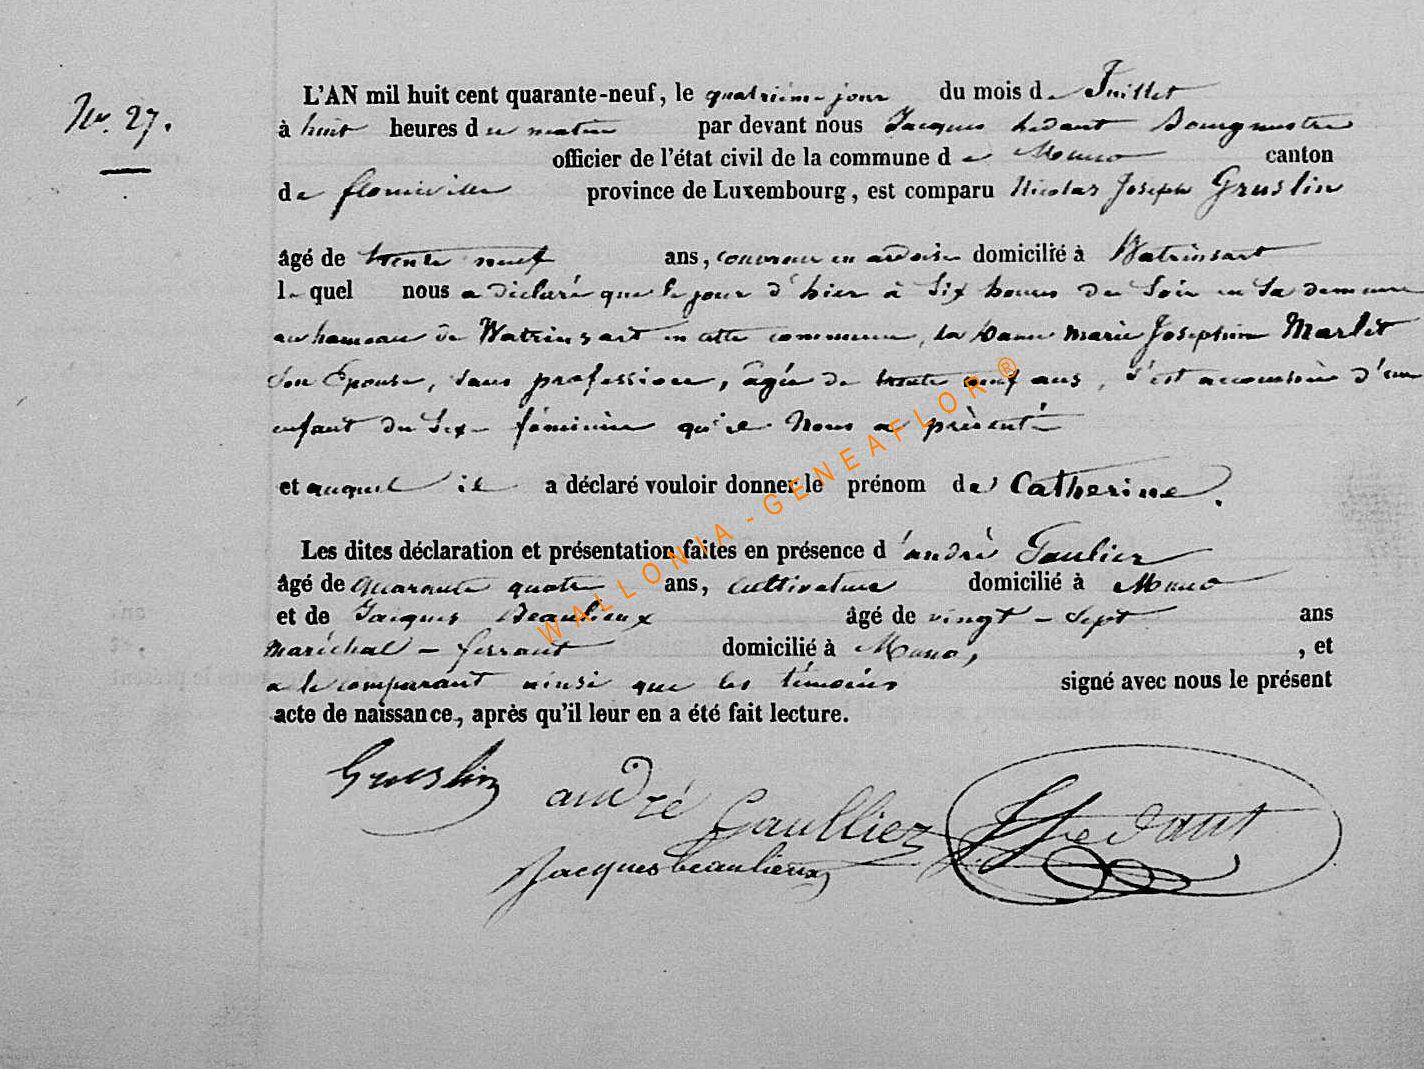 No. 27.
L'AN mil huit cent quarante-neuf, le quatrième jour du mois de Juillet
à huit heures du matin par devant nous Jacques hedant Bourgmestre
officier de l'état civil de la commune de Muno canton
de florenville province de Luxembourg, est comparu Nicolas Joseph Gruslin
âgé de trente neuf ans, couvreur en ardoise domicilié à Watrinsart
lequel nous a déclaré que le jour d'hier à Six heures du Soir en Sa demeure
au hameau de Watrinsart en cette commune, la Dame Marie Josephine Marlet
Son Epouse, Sans profession, âgée de trente neuf ans, s'est accouchée d'un
enfant du Sexe féminin qu'il Nous a présenté
et auquel il a déclaré vouloir donner le prénom de Catherine.
Les dites déclaration et présentation faites en présence d'andré Gaulier
âgé de quarante quatre ans, cultivateur domicilié à Muno
et de Jacques Beaulieux âgé de vingt-sept ans
maréchal-ferrant domicilié à Muno, , et
a le comparant ainsi que les témoins signé avec nous le présent
acte de naissance, après qu'il leur en a été fait lecture.
Gruslin andré Gaulliez Hedant
Jacques beaulieux
WALLONIA-GENEAFLOR®